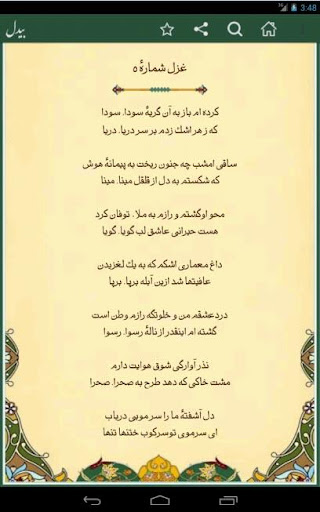 3:48
بیدل
غزل شمارهٔ ۵
کرده ام باز به آن گریهٔ سودا، سودا
که ز هر اشك زدم بر سر دریا، دریا
ساقی امشب چه جنون ریخت به پیمانهٔ هوش
که شکستم به دل از قلقل مینا، مینا
محو اوگشتم و رازم به ملا، توفان کرد
هست حیرانی عاشق لب گویا، گویا
داغ معماری اشکم که به یك لغزیدن
عافیتها شد ازین آبله برپا، برپا
درد عشقم من و خلوتگه رازم وطن است
گشته ام اینقدر از نالهٔ رسوا، رسوا
نذر آوارگی شوق هوایت دارم
مشت خاکی که دهد طرح به صحرا، صحرا
دل آشفتهٔ ما را سر مویی دریاب
ای سر موی تو سرکوب ختنها تنها